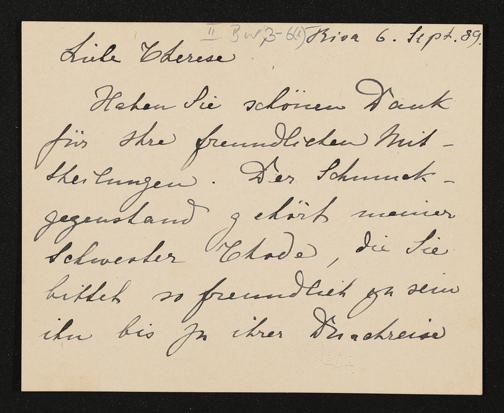 Riva 6. Sept. 89.
Liebe Therese
Haben Sie schönen Dank
für Ihre freundlichen Mit-
theilungen. Der Schmuck-
gegenstand gehört meiner
Schwester Thode, die Sie
bittet so freundlich zu sein
ihn bis zu ihrer Durchreise